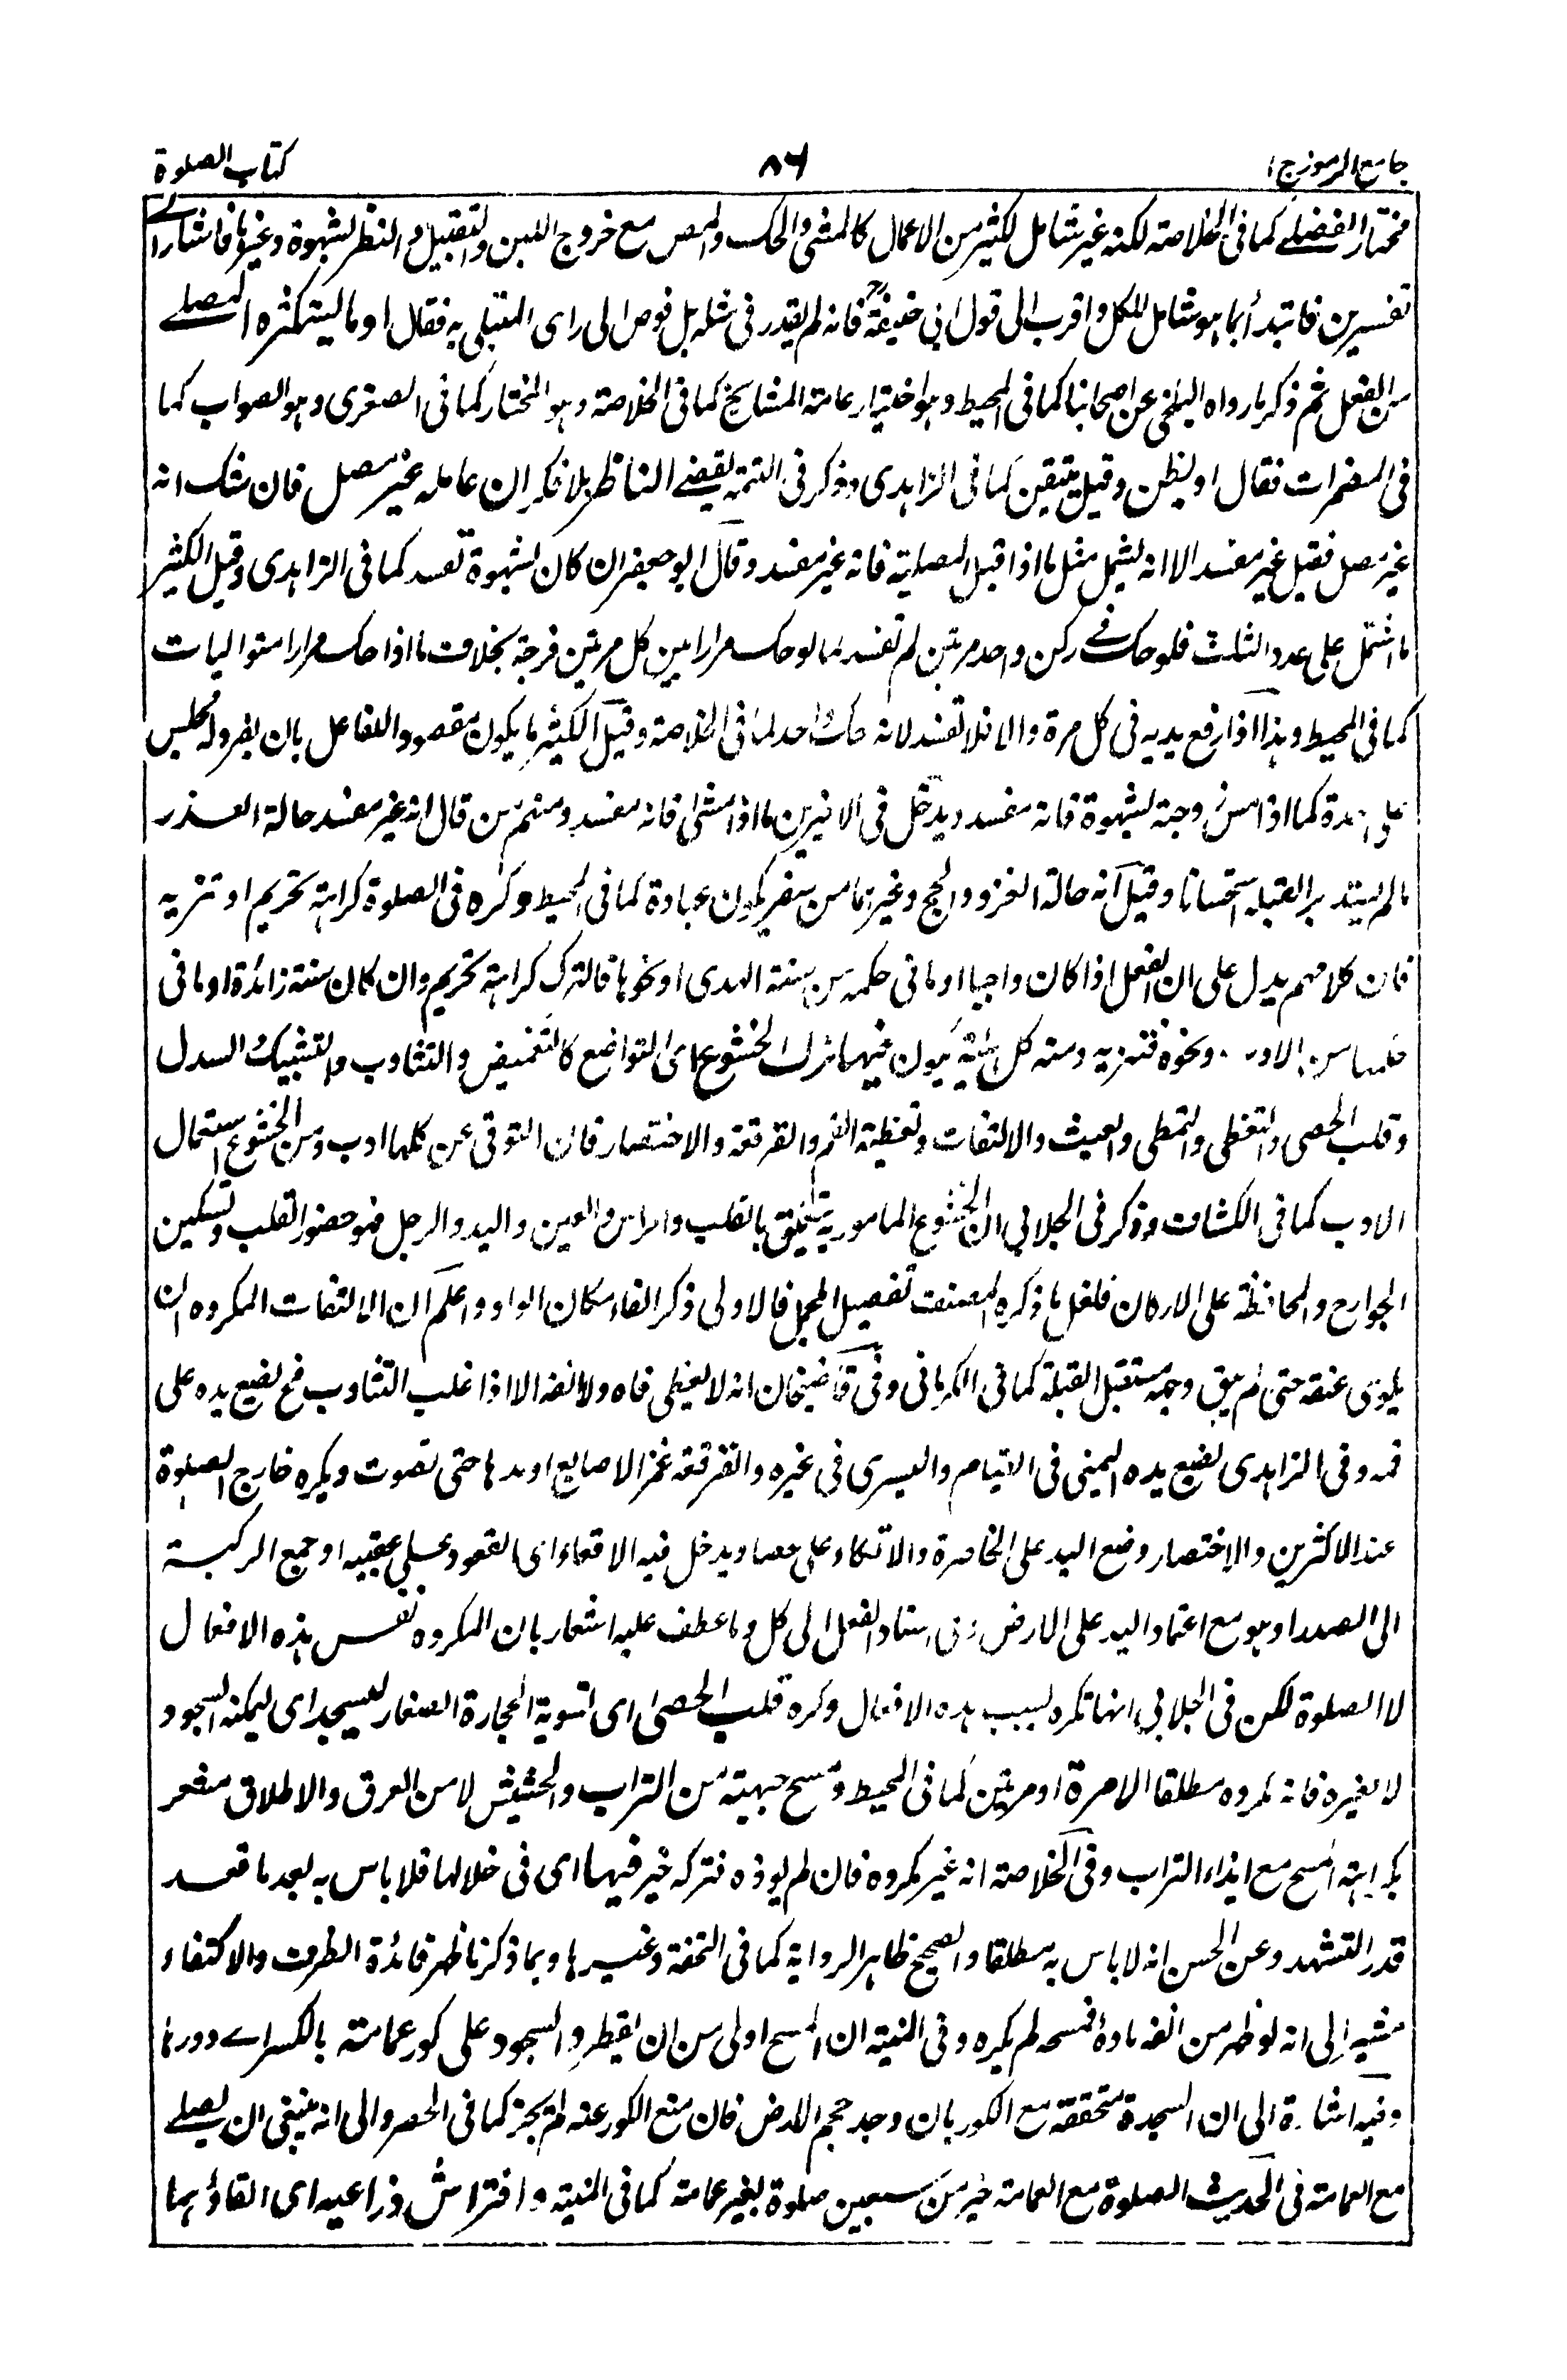 جامع الرموز ج ۱
۸۶
كتاب الصلوة
مختار الفضلے كما فى الخلاصة لكنه غير شامل لكثير من الاعمال كالمشى والحك والمص مع خروج اللبن والتقبيل والنظر بشهوة وغيرها فاشار الى
تفسيرين فابتدأ بما هو شامل للكل واقرب الى قول ابى حنيفة رح فانه لم يقدر فى مثله بل فوض الى راى المبتلى به فقال او ما يستكثره المصلے
من الفعل ثم ذكر ما رواه البلخى عن اصحابنا كما فى المحيط وهو اختيار عامة المشايخ كما فى الخلاصة وهو المختار كما فى الصغرى وهو الصواب كما
فى المضمرات فقال او يظن وقيل يتيقن كما فى الزاهدى وذكر فى التتمة يقضے الناظر بلا فكر ان عامله غير مصل فان شك انه
غير مصل فقيل غير مفسد الا انه يشمل مثل ما اذا قبل المصلية فانه غير مفسد وقال ابو جعفر ان كان بشهوة تفسد كما فى الزاهدى وقيل الكثير
ما اشتمل على عدد الثلث فلو حك فے ركن واحد مرتين لم تفسد كما لو حك مرارا بين كل مرتين فرجة بخلاف ما اذا حك مرارا متواليات
كما فى المحيط وهذا اذا رفع يديه فى كل مرة والا فلا تفسد لانه حك واحد كما فى الخلاصة وقيل الكثير ما يكون مقصودا للفاعل بان يفرد له مجلس
على حدة كما اذا مس زوجته لشهوة فانه مفسد ويدخل فى الاخيرين ما اذا مشى فانه مفسد ومنهم من قال انه غير مفسد حالة العذر
ما لم يستدبر القبلة استحسانا وقيل انه حالة الغزو والحج وغيرهما من سفر يكون عبادة كما فى المحيط وكره فى الصلوة كراهة تحريم او تنزيه
فان كلامهم يدل على ان الفعل اذا كان واجبا او ما فى حكمه من سنة الهدى او نحوها فالترك كراهة تحريم وان كان سنة زائدة او ما فى
حكمها من الادب ونحوه فتنزيه ومنه كل هيئة يكون فيها ترك الخشوع اى التواضع كالتغميض والتثاوب والتشبيك السدل
وقلب الحصى والتخطى والتمطى والعبث والالتفات وتغطية الفم والفرقعة والاختصار فان التوقى عن كلها ادب ومن الخشوع استعمال
الادب كما فى الكشاف وذكر فى الجلابى ان الخشوع المامور به يتعلق بالقلب والراس والعين واليد والرجل فهو حضور القلب وتسكين
الجوارح والمحافظة على الاركان فلعل ما ذكره المصنف تفصيل المجمل فالاولى ذكر الفاء مكان الواو واعلم ان الالتفات المكروه ان
يلوى عنقه حتى لم يبق وجهه مستقبل القبلة كما فى الكرمانى وفى قاضيخان انه لا يغطى فاه ولا انفه الا اذا غلب التثاوب فح يضع يده على
فمه وفى الزاهدى يضع يده اليمنى فى القيام واليسرى فى غيره والفرقعة غمز الاصابع او مدها حتى تصوت ويكره خارج الصلوة
عند الاكثرين والاختصار وضع اليد على الخاصرة والاتكاء على عصا ويدخل فيه الاقعاء اى القعود على عقبيه او جمع الركبة
الى الصدر او هو مع اعتماد اليد على الارض وفى اسناد الفعل الى كل وما عطف عليه اشعار بان المكروه نفس هذه الافعال
لا الصلوة لكن فى الجلابى انها تكره لسبب هذه الافعال وكره قلب الحصى اى تسوية الحجارة الصغار ليسجد اى ليمكنه السجود
لا لغيره فانه مكروه مطلقا الا مرة او مرتين كما فى المحيط ومسح جبهته من التراب والحشيش لا من العرق والاطلاق مشعر
بكراهة المسح مع ايذاء التراب وفى الخلاصة انه غير مكروه فان لم يوذه فتركه خير فيها اى فى خلالها فلا باس به بعد ما قعد
قدر التشهد وعن الحسن انه لا باس به مطلقا والصحيح ظاهر الرواية كما فى التحفة وغيرها وبما ذكرنا ظهر فائدة الظرف والاكتفاء
مشير الى انه لو ظهر من انفه ماده فمسحه لم يكره وفى المنية ان المسح اولى من ان يقطر والسجود على كور عمامته بالكسر اے دورها
وفيه اشارة الى ان السجدة متحققة مع الكور بان وجد حجم الارض فان منع الكور عنه لم يجز كما فى الحصر والى انه ينبغى ان يصلے
مع العمامة فى الحديث الصلوة مع العمامة خير من سبعين صلوة بغير عمامة كما فى المنية وافتراش ذراعيه اى القاؤهما